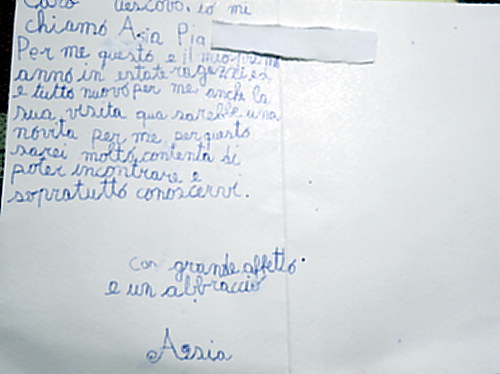 Caro vescovo, io mi
chiamo Asia Pia
Per me questo è il mio primo
anno in estate ragazzi ed
e tutto nuovo per me anchi la
sua visita qua sarebbe una
novita per me per questo
sarei molto contenta di
poter incontrare e
sopratutto conoscervi.
con grande affetto.
e un abbraccio
Asia